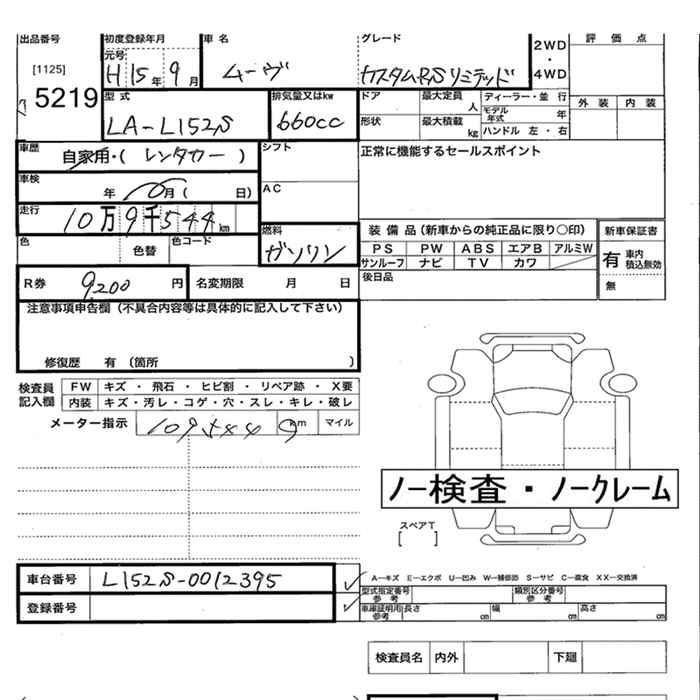 出品番号 初度登録年月 車名 グレード 評価点
元号 2WD
[1125] H 15年 9月 ムーヴ カスタムRSリミテッド ・
5219 4WD
型式 排気量又はkw ドア 最大定員 人 ディーラー・並行 外装 内装
LA-L152S 660cc モデル年式 年
形状 最大積載 kg ハンドル 左・右
車歴 自家用・(レンタカー) シフト 正常に機能するセールスポイント
車検 年 月( 日) AC
走行 10万9千544km
燃料 装備品(新車からの純正品に限り○印) 新車保証書
色 色替 色コード ガソリン PS PW ABS エアB アルミW 有 車内積込無効
サンルーフ ナビ TV カワ
R券 9,200円 名変期限 月 日 後日品 無
注意事項申告欄(不具合内容等は具体的に記入して下さい)
修復歴 有(箇所 )
検査員記入欄 FW キズ・飛石・ヒビ割・リペア跡・X要
内装 キズ・汚レ・コゲ・穴・スレ・キレ・破レ
メーター指示 109544 km マイル
ノー検査・ノークレーム
スペアT
[ ]
車台番号 L152S-0012395
A—キズ E—エクボ U—凹み W—補修跡 S—サビ C—腐食 XX—交換済
型式指定番号 参考 類別区分番号 参考
登録番号 車庫証明用 参考 長さ cm 幅 cm 高さ cm
検査員名 内外 下廻